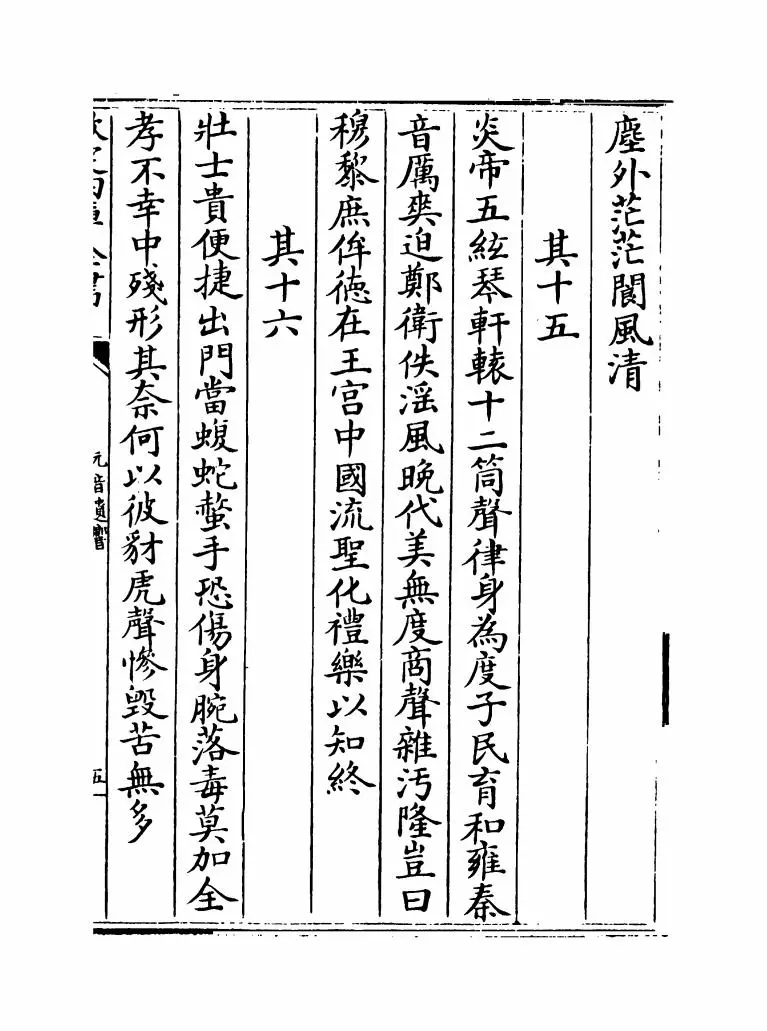 塵外茫茫閬風清
其十五
炎帝五絃琴軒轅十二筒聲律身為度子民育和雍秦
音厲爽迫鄭衛佚滛風晩代美無度商聲雜汚隆豈曰
穆黎庶侔徳在王宫中國流聖化禮樂以知終
其十六
壯士貴便捷出門當蝮蛇螫手恐傷身腕落毒莫加全
孝不幸中殘形其奈何以彼豺虎聲慘毁苦無多
元音遺響
五